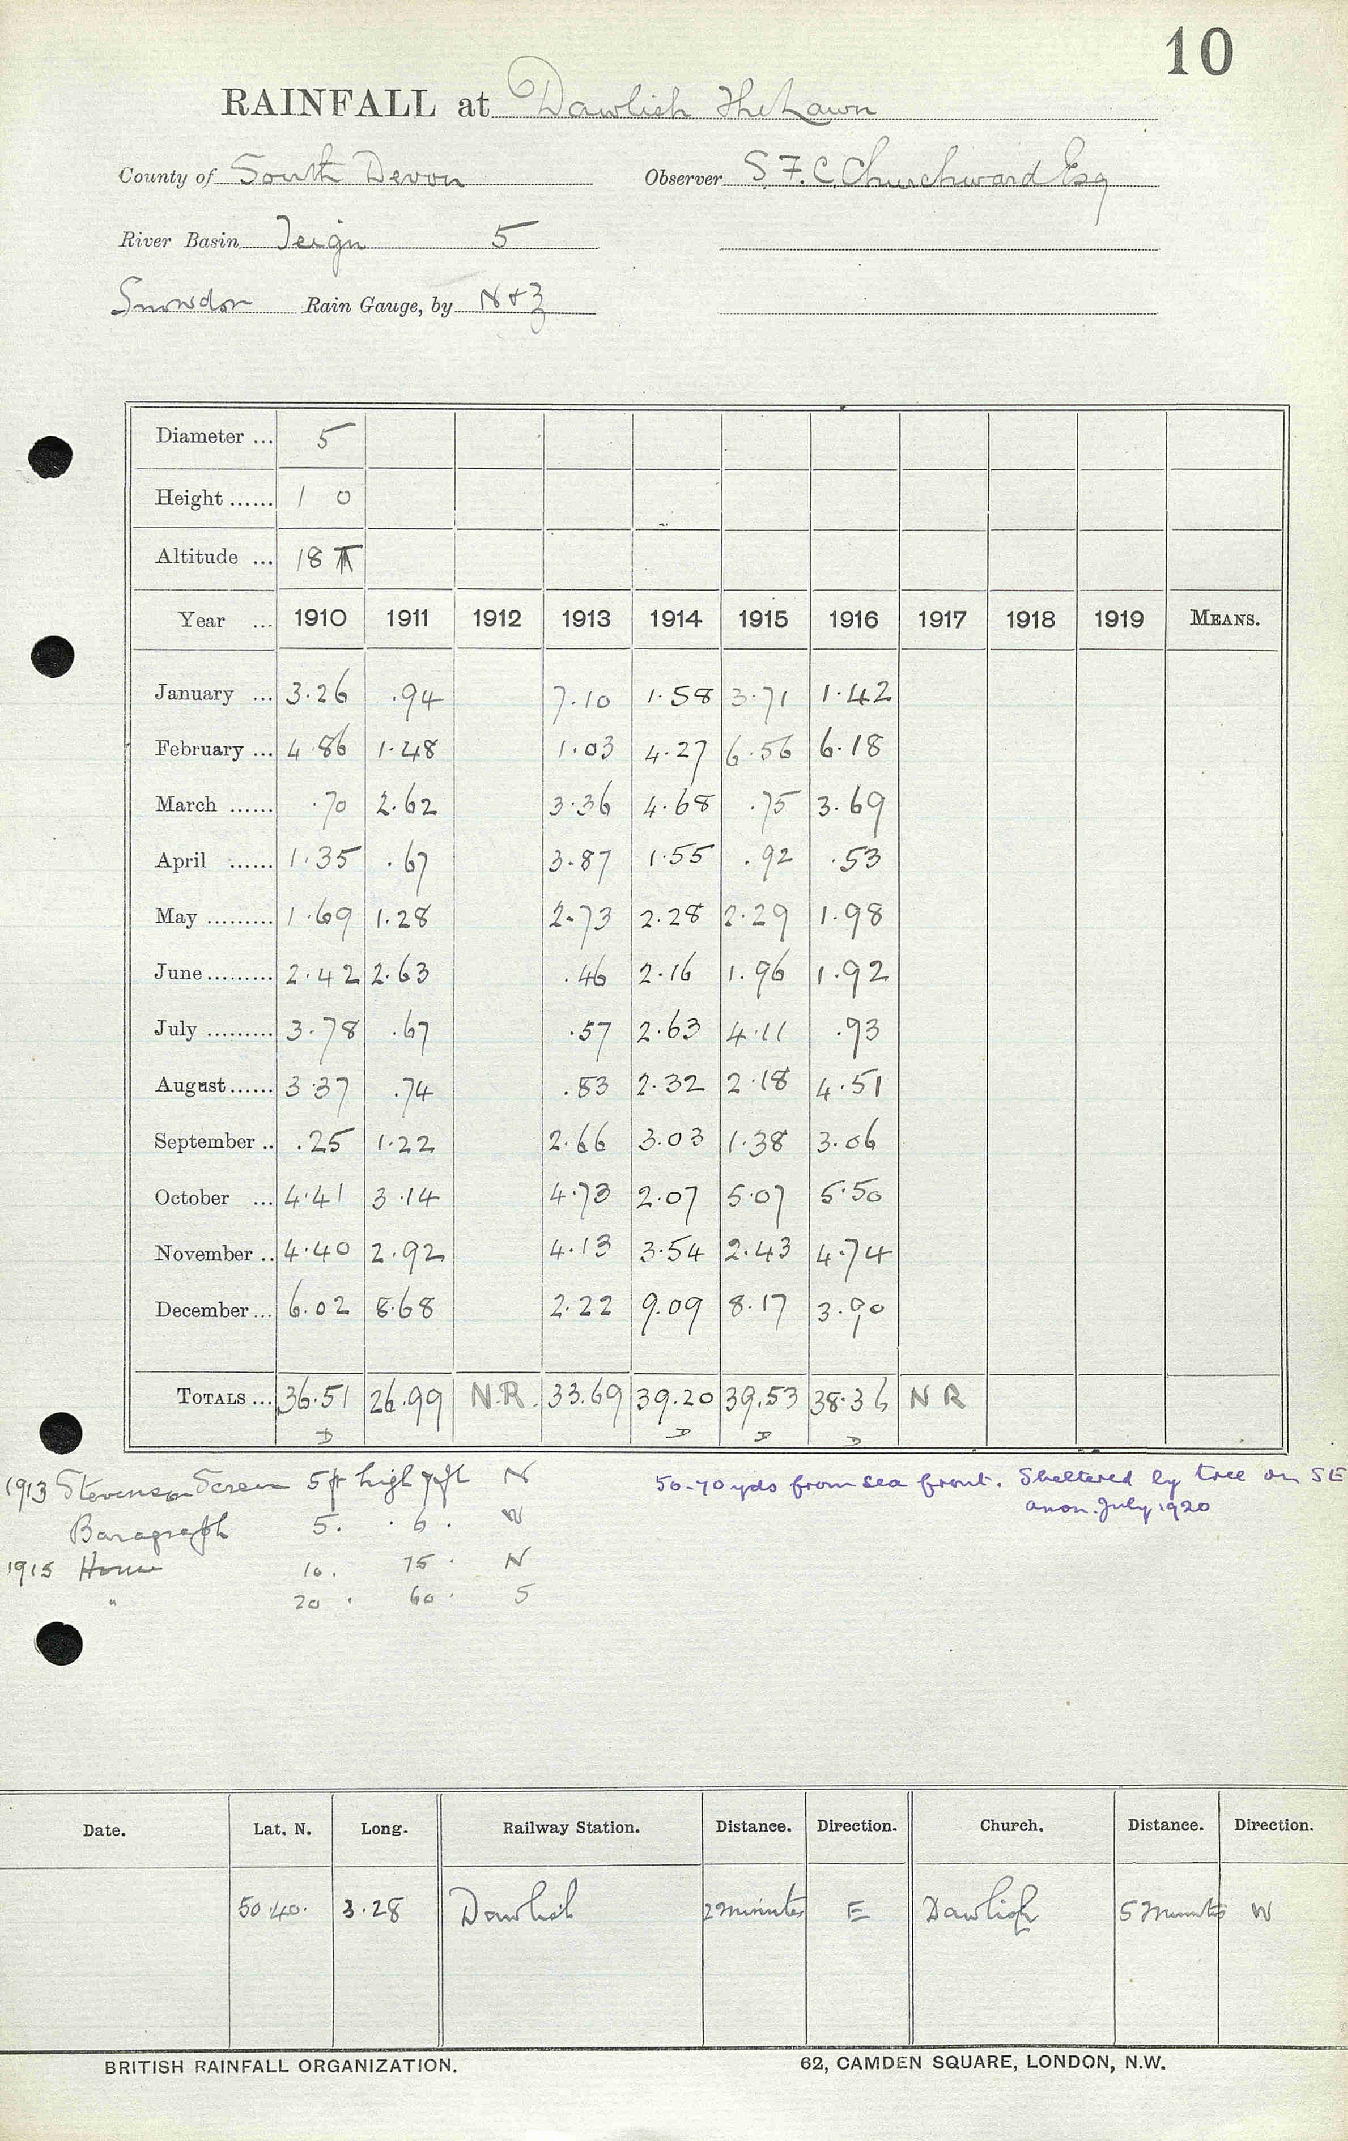 10
RAINFALL at Dawlish The Lawn
County of South Devon Observer S. F. C. Churchward Esq
River Basin Teign 5
Snowdon Rain Gauge, by N & Z
Diameter ... 5
Height ...... 1 0
Altitude ... 18
Year ... 1910 1911 1912 1913 1914 1915 1916 1917 1918 1919 MEANS.
January ... 3.26 .94 7.10 1.58 3.71 1.42
February ... 4.86 1.48 1.03 4.27 6.56 6.18
March ...... .70 2.62 3.36 4.68 .75 3.69
April ...... 1.35 .67 3.87 1.55 .92 .53
May ......... 1.69 1.28 2.73 2.28 2.29 1.98
June ......... 2.42 2.63 .46 2.16 1.96 1.92
July ......... 3.78 .67 .57 2.63 4.11 .93
August ...... 3.37 .74 .83 2.32 2.18 4.51
September .. .25 1.22 2.66 3.03 1.38 3.06
October ... 4.41 3.14 4.73 2.07 5.07 5.50
November .. 4.40 2.92 4.13 3.54 2.43 4.74
December ... 6.02 8.68 2.22 9.09 8.17 3.90
TOTALS ... 36.51 26.99 N.R. 33.69 39.20 39.53 38.36 N R
D D D D
1913 Stevenson Screen 5 ft high 7 ft N
50-70 yds from sea front. Sheltered by tree on SE
anon. July 1920
Barograph 5. . 6 . W
1915 House 10. 75 . N
" 20 . 60 . S
Date. Lat. N. Long. Railway Station. Distance. Direction. Church. Distance. Direction.
50.40. 3.28 Dawlish 2 minutes E Dawlish 5 minutes W
BRITISH RAINFALL ORGANIZATION. 62, CAMDEN SQUARE, LONDON, N.W.